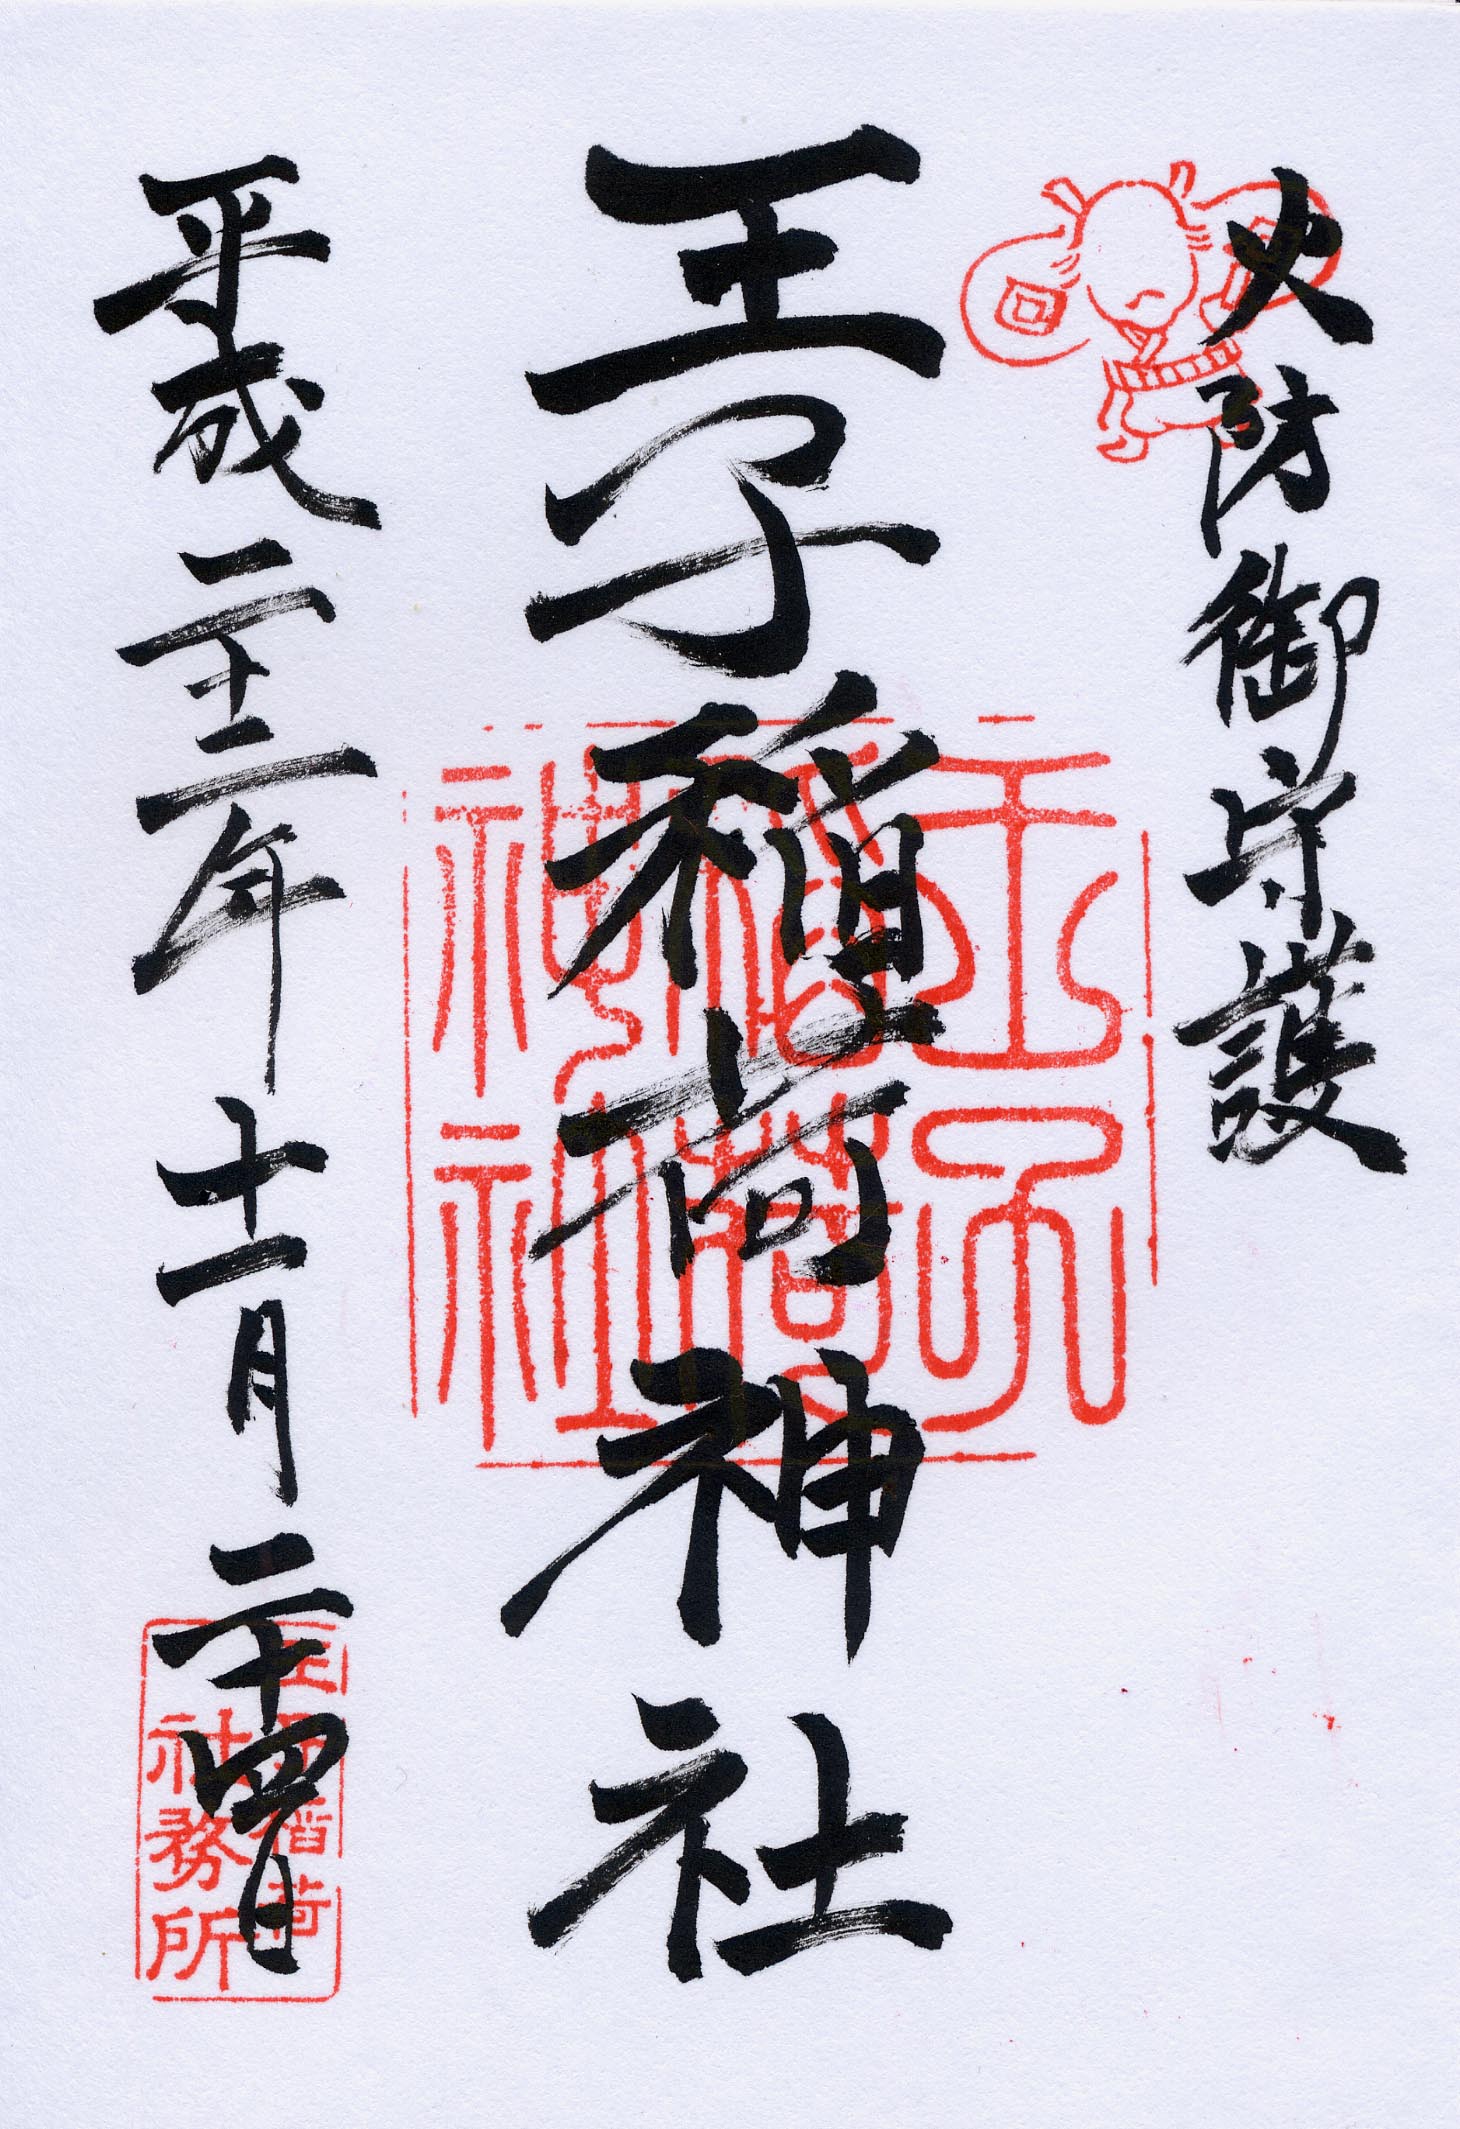 火防御守護
王子稲荷神社
平成二十二年十一月二十四日
王子
稲荷
神社
王子稲荷
社務所